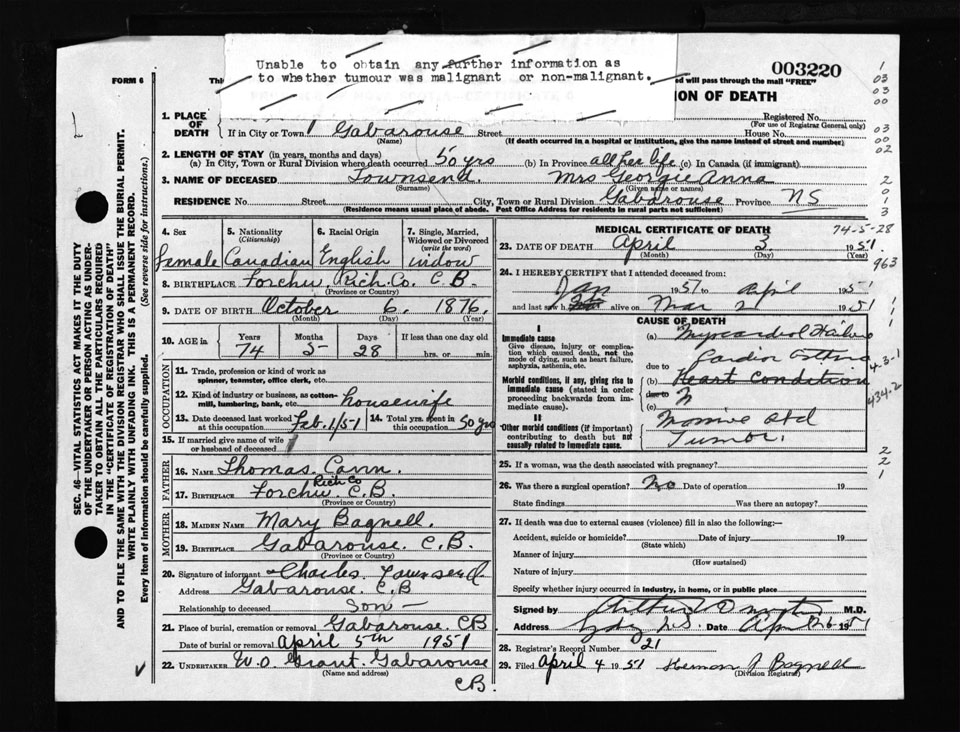 Unable to obtain any further information as
to whether tumour was malignant or non-malignant.
003220
FORM 6
will pass through the mail "FREE"
ION OF DEATH
Registered No.
(For use of Registrar General only)
1. PLACE OF DEATH
If in City or Town Gabarouse Street House No.
(Name) (If death occurred in a hospital or institution, give the name instead of street and number)
2. LENGTH OF STAY (in years, months and days)
(a) In City, Town or Rural Division where death occurred 50 yrs (b) In Province all her life (c) In Canada (if immigrant)
3. NAME OF DECEASED Townsend. Mrs Georgie Anna
(Surname) (Given name or names)
RESIDENCE No. Street City, Town or Rural Division Gabarouse Province NS
(Residence means usual place of abode. Post Office Address for residents in rural parts not sufficient)
4. Sex
Female
5. Nationality
(Citizenship)
Canadian
6. Racial Origin
English
7. Single, Married, Widowed or Divorced
(write the word)
widow
8. BIRTHPLACE Forchu, Rich. Co. C B.
(Province or Country)
9. DATE OF BIRTH October 6. 1876.
(Month) (Day) (Year)
10. AGE in Years Months Days If less than one day old
74 5 28 hrs. or min.
OCCUPATION
11. Trade, profession or kind of work as
spinner, teamster, office clerk, etc.
12. Kind of industry or business, as cotton-
mill, lumbering, bank, etc. housewife
13. Date deceased last worked at this occupation Feb. 1/51
14. Total yrs. spent in this occupation 50 yrs
15. If married give name of wife
or husband of deceased
FATHER
16. NAME Thomas Cann.
17. BIRTHPLACE Forchu Rich Co C.B.
(Province or Country)
MOTHER
18. MAIDEN NAME Mary Bagnell.
19. BIRTHPLACE Gabarouse. C.B.
(Province or Country)
20. Signature of informant Charles Townsend.
Address Gabarouse. C.B
Relationship to deceased Son -
21. Place of burial, cremation or removal Gabarouse CB
Date of burial or removal April 5th 1951
22. UNDERTAKER W.O. Grant. Gabarouse
(Name and address)
CB.
MEDICAL CERTIFICATE OF DEATH
74-5-28
23. DATE OF DEATH April 3 1951
(Month) (Day) (Year)
963
24. I HEREBY CERTIFY that I attended deceased from:
Jan 1951 to April 1951
and last saw h alive on Mar 2 1951
CAUSE OF DEATH
I
Immediate cause
Give disease, injury or complica-
tion which caused death, not the
mode of dying, such as heart failure,
asphyxia, asthenia, etc.
Morbid conditions, if any, giving rise to
immediate cause (stated in order
proceeding backwards from im-
mediate cause).
II
Other morbid conditions (if important)
contributing to death but not
causally related to immediate cause.
(a) Myocardial Failure
due to
(b) Heart condition
due to
(c)
Tumor.
4-3-1
434.2
25. If a woman, was the death associated with pregnancy?
26. Was there a surgical operation? No Date of operation 19
State findings Was there an autopsy?
27. If death was due to external causes (violence) fill in also the following:—
Accident, suicide or homicide? Date of injury 19
(State which)
Manner of injury
(How sustained)
Nature of injury
Specify whether injury occurred in industry, in home, or in public place
Signed by M.D.
Address Date 1951
28. Registrar's Record Number 21
29. Filed April 4 1951 Bagnell
(Division Registrar)
SEC. 46—VITAL STATISTICS ACT MAKES IT THE DUTY
OF THE UNDERTAKER OR PERSON ACTING AS UNDER-
TAKER TO OBTAIN ALL THE PARTICULARS REQUIRED
IN THE "CERTIFICATE OF REGISTRATION OF DEATH"
AND TO FILE THE SAME WITH THE DIVISION REGISTRAR WHO SHALL ISSUE THE BURIAL PERMIT.
WRITE PLAINLY WITH UNFADING INK. THIS IS A PERMANENT RECORD.
Every item of information should be carefully supplied. (See reverse side for instructions.)